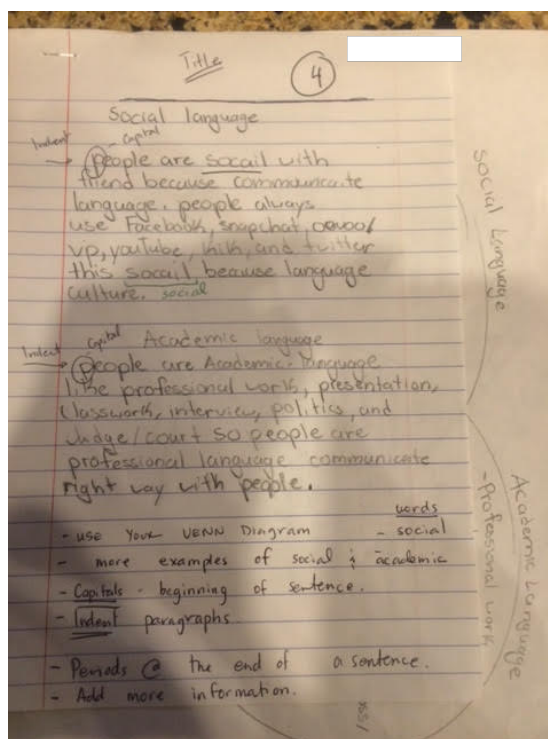 Title
4
Social language
Indent
- Capital
people are socail with
friend because commouncate
language. people always
use Facebook, snapchat, oovoo/
vp, youTube, kik, and twitter
this socail beause language
culture. social
Capital Academic language
Indent
people are Academic. language
like professional work, presentation,
classwork, interview, politics, and
Judge/court so people are
professional language communicate
right way with people.
words
- use Your VENN Diagram - social
- more examples of social & academic
- Capitals - beginning of sentence.
- Indent paragraphs
- Periods @ the end of a sentence.
- Add more information.
Social Language
Academic Language
- Professional work